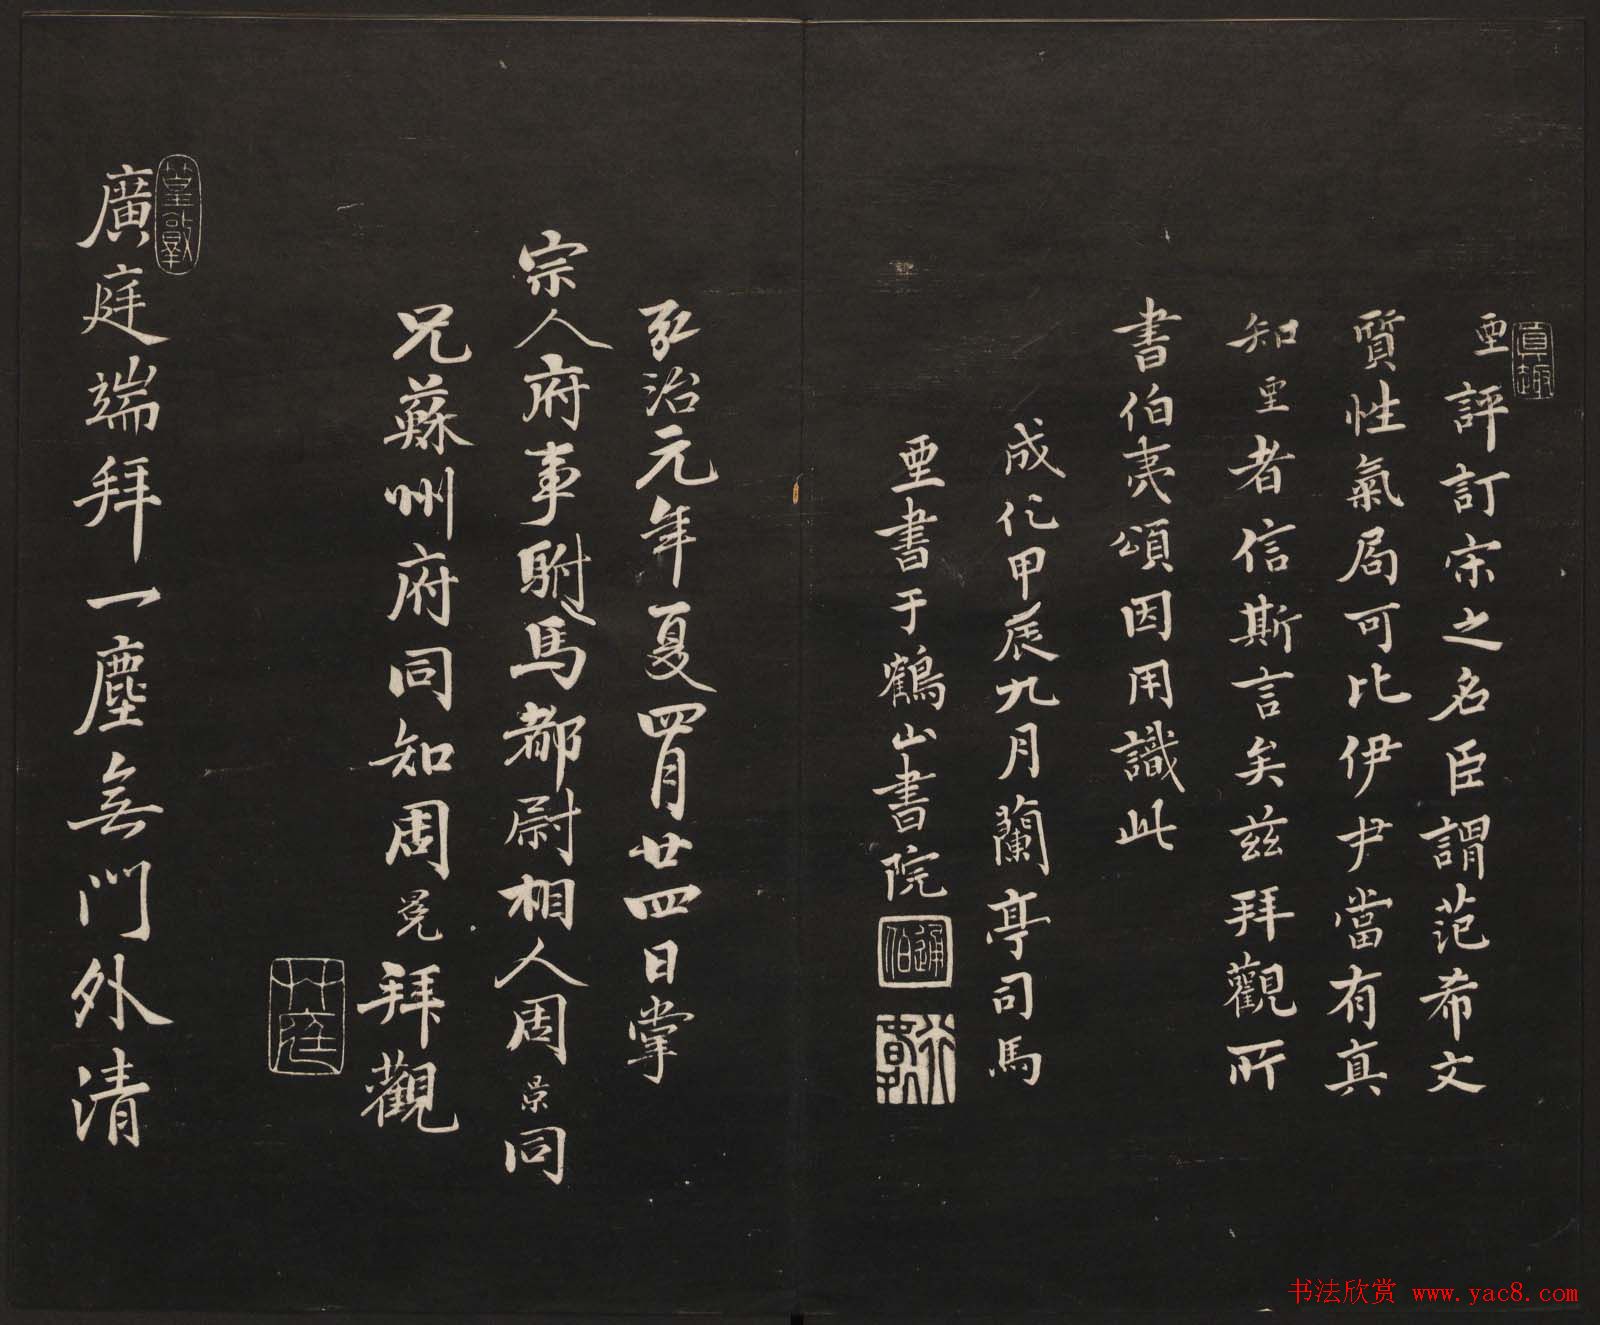 亜評訂宋之名臣謂范希文
質性氣局可比伊尹當有真
知亜者信斯言矣兹拜觀所
書伯夷頌因用識此
成化甲辰九月蘭亭司馬
亜書于鶴山書院
弘治元年夏四月廿四日掌
宗人府事駙馬都尉相人周景同
兄蘇州府同知周冕拜觀
廣庭端拜一塵無門外清
真趣
書法欣賞 www.yac8.com